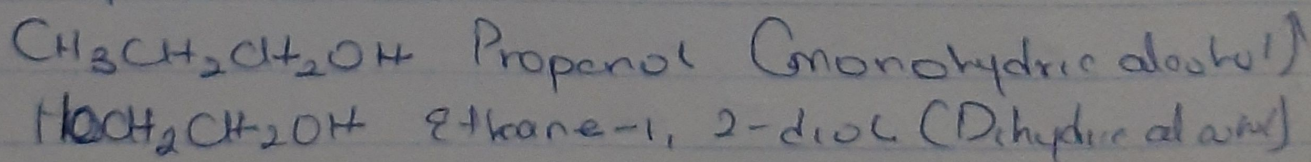 CH₃CH₂CH₂OH Propanol (monohydric alcohol)
HOCH₂CH₂OH Ethane-1, 2-diol (Dihydric alcohol)